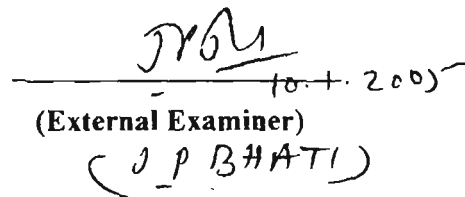 10.1.2005
(External Examiner)
(J P BHATI)